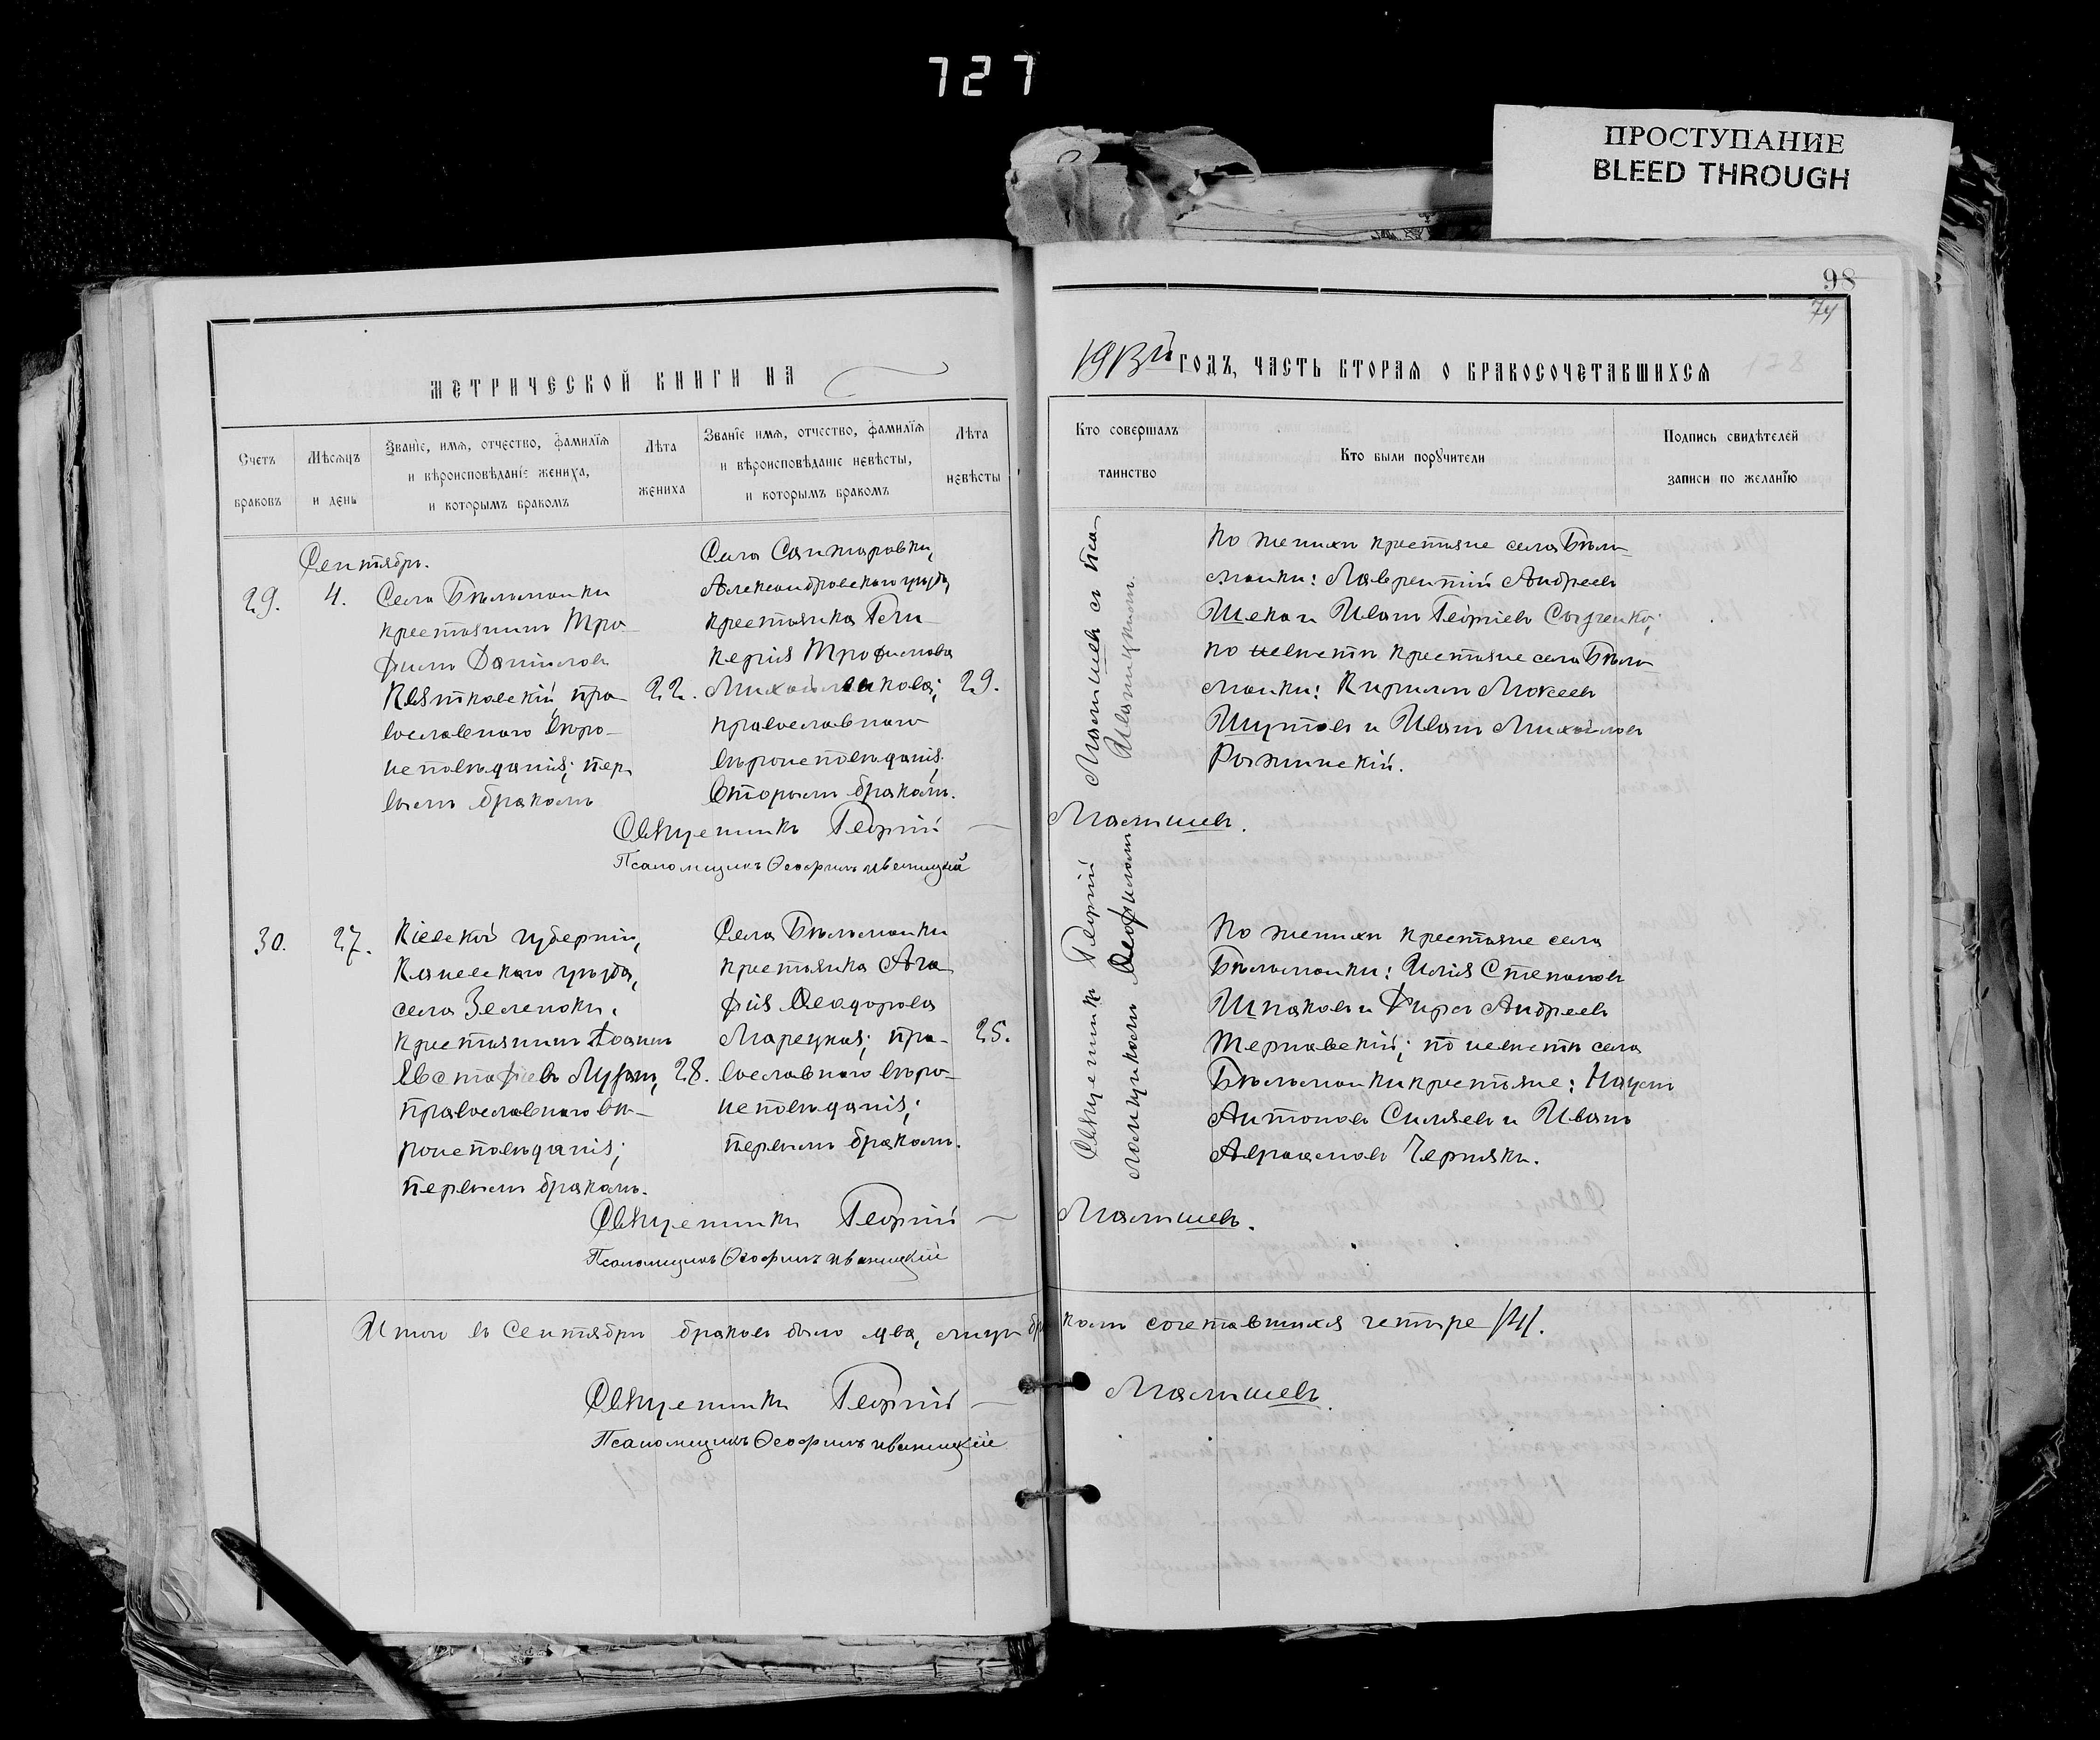 727
ПРОСТУПАНИЕ
BLEED THROUGH
98
74
МЕТРИЧЕСКОЙ КНИГИ НА
1913й ГОДЪ, ЧАСТЬ ВТОРАЯ О БРАКОСОЧЕТАВШИХСЯ
Счетъ браковъ
Мѣсяцъ и день
Званіе, имя, отчество, фамилія
и вѣроисповѣданіе жениха,
и которымъ бракомъ
Лѣта жениха
Званіе имя, отчество, фамилія
и вѣроисповѣданіе невѣсты,
и которымъ бракомъ
Лѣта невѣсты
Кто совершалъ таинство
Кто были поручители
Подпись свидѣтелей
записи по желанію
Сентябрь.
29.
4.
Села Бѣльманки
крестьянинъ Тро-
фимъ Даніиловъ
Квятковскій, пра-
вославнаго вѣро-
исповѣданія; пер-
вымъ бракомъ
22.
Села Санжаровки,
Александровскаго уѣзда,
крестьянка Гли-
керія Трофимова
Михайликова;
православнаго
вѣроисповѣданія;
вторымъ бракомъ.
29.
Малышевъ съ Пса-
Иваницкимъ.
По женихѣ крестьяне села Бѣль-
манки: Лаврентій Андреевъ
Шека и Иванъ Георгіевъ
по невѣстѣ крестьяне села Бѣль-
манки: Кириллъ Мокеевъ
Шутовъ и Иванъ Михайловъ
Рожинскій.
Священникъ Георгій Малышевъ.
Псаломщикъ Ѳеофилъ Иваницкій
30.
27.
Кіевской губерніи,
Каневскаго уѣзда,
села Зеленьки,
крестьянинъ Іоаннъ
Евстафіевъ Лузанъ,
православнаго вѣ-
роисповѣданія;
первымъ бракомъ.
28.
Села Бѣльманки
крестьянка Ага-
фія Ѳеодорова
Марецкая; пра-
вославнаго вѣро-
исповѣданія;
первымъ бракомъ.
25.
Священникъ Георгій
ломщикомъ Ѳеофиломъ
По женихѣ крестьяне села
Бѣльманки: Илія Степановъ
Шпаковъ и Фирсъ Андреевъ
Тернавскій; по невѣстѣ села
Бѣльманки крестьяне: Наумъ
Антоновъ Силяевъ и Иванъ
Аврамовъ Чернякъ.
Священникъ Георгій Малышевъ.
Псаломщикъ Ѳеофилъ Иваницкій
Итого въ Сентябрѣ браковъ было два, лицъ бракомъ сочетавшихся четыре /4/.
Священникъ Георгій Малышевъ.
Псаломщикъ Ѳеофилъ Иваницкій